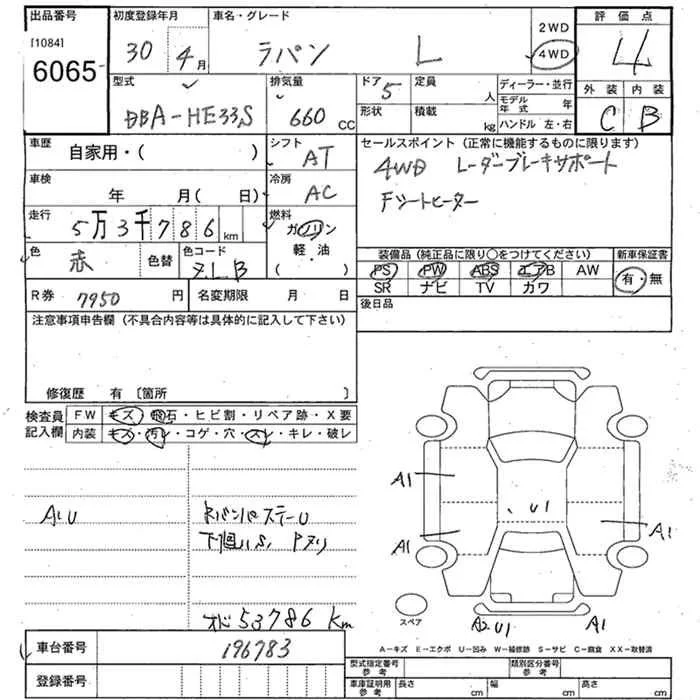 出品番号 初度登録年月 車名・グレード 評価点
[1084] 30年 4月 ラパン L 2WD 4WD 4
6065
型式 排気量 ドア 5 定員 人 ディーラー・並行 外装 内装
DBA-HE33S 660 CC 形状 積載 kg モデル年式 年 C B
ハンドル 左・右
車歴 自家用・( ) シフト AT セールスポイント (正常に機能するものに限ります)
車検 年 月( 日) 冷房 AC 4WD レーダーブレーキサポート
Fシートヒーター
走行 5万3千786km 燃料 ガソリン
軽・油
( )
色 赤 色替 色コード ZLB 装備品 (純正品に限り○をつけてください) 新車保証書
PS PW ABS エアB AW 有・無
SR ナビ TV カワ
R券 7950円 名変期限 月 日 後日品
注意事項申告欄 (不具合内容等は具体的に記入して下さい)
修復歴 有 〔箇所 〕
検査員 FW キズ・飛石・ヒビ割・リペア跡・X要
記入欄 内装 キズ・汚レ・コゲ・穴・スレ・キレ・破レ
A1 U1
AU バンパステーU
A1 A1
オド 53786 Km
スペア A2 U1 A1
A-キズ E-エクボ U-凹み W-補修跡 S-サビ C-腐食 XX-取替済
車台番号 196783
登録番号
型式指定番号 参考 類別区分番号 参考
車庫証明用 参考 長さ cm 幅 cm 高さ cm